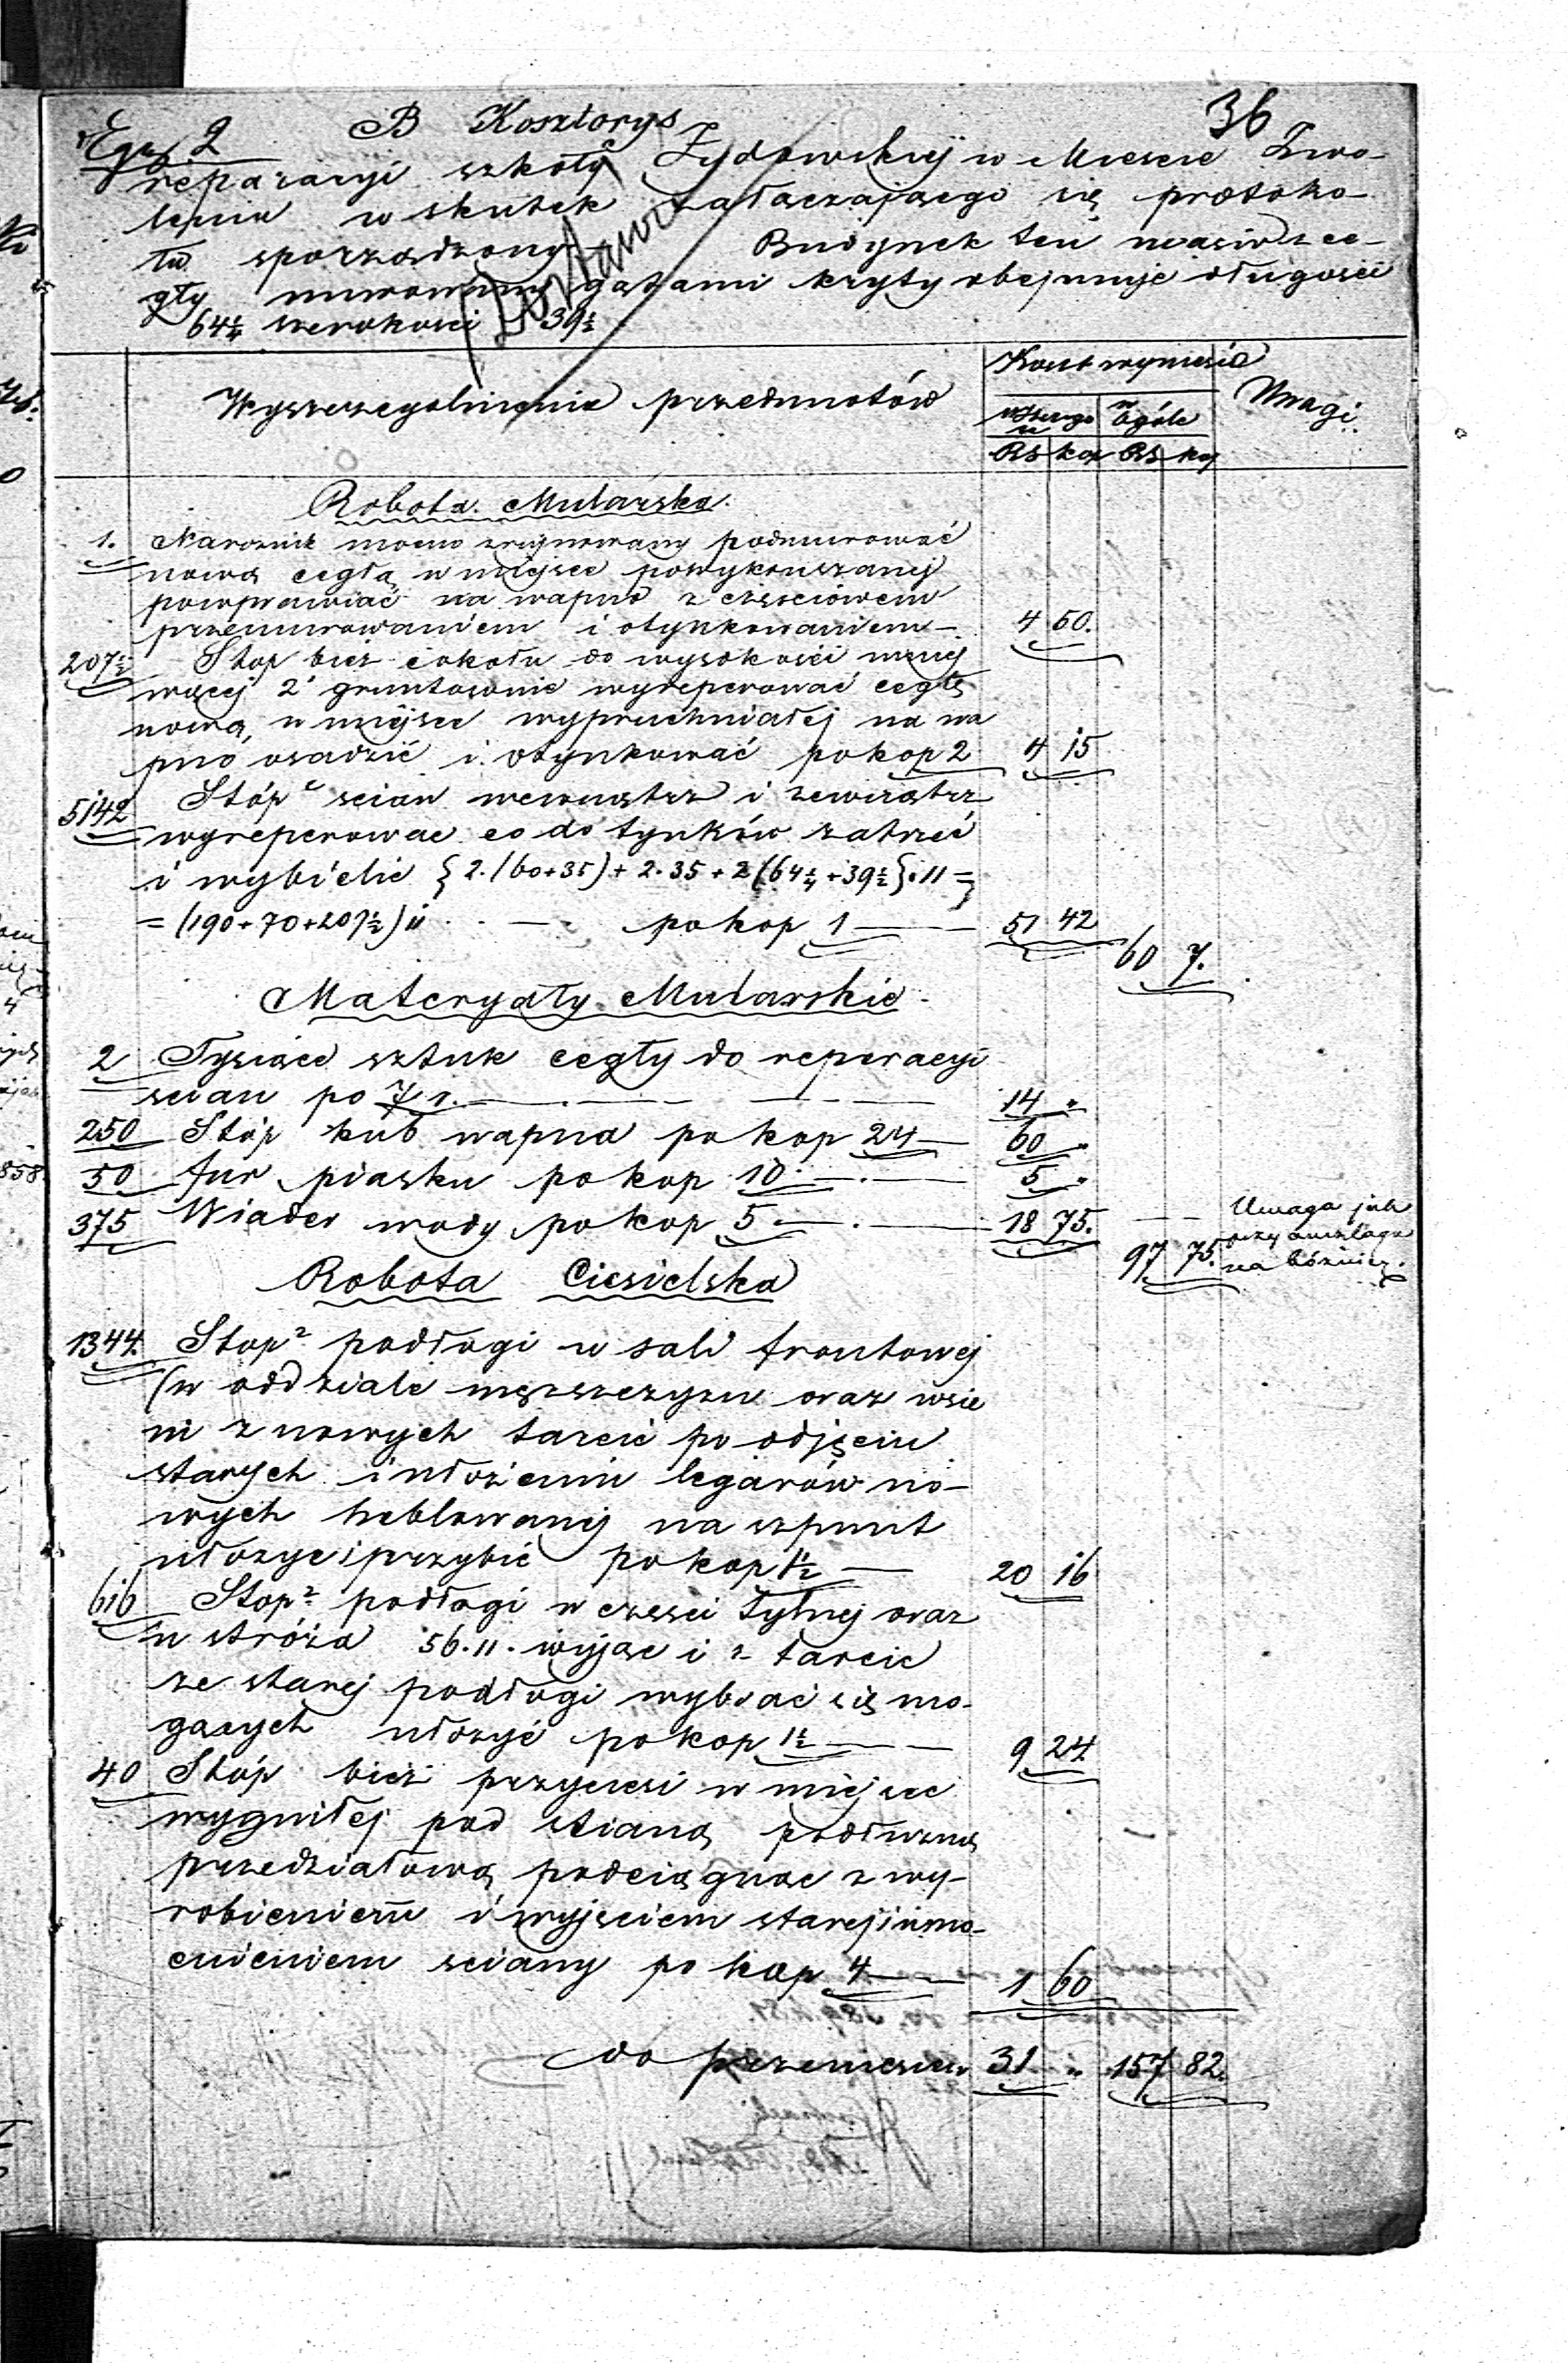 Egz 2 B Kosztorys 36
reparacyi szkoły Żydowskiej w Miescie Zwo-
leniu w skutek załaczajacego się protoko-
łu sporządzony Budynek ten masiw z ce-
gły murowany gątami kryty obejmuje długości
64¼ szerokosci 39½
Wyszczegolnienie przedmotów
Koszt wyniesie
w ogóle
Uwagi
Rs kop Rs kop
Robota Mularska.
1. Narożnik mocno zrujnowany podmurować
nową cegłą w miejsce powykruszanej
powprawiać na wapno z częściowem
przemurowaniem i otynkowaniem — 4 50.
207½ Stóp bież cokołu do wysokości mniej
więcej 2' gruntownie wyreperować cegłę
nową, w miejsce wypruchniałej na wa
pno osadzić i otynkować po kop 2 4 15
5142 Stóp² scian wewnątrz i zewnątrz
wyreperowac co do tynków zatrzeć
i wybielić {2.(60+35)+2.35+2(64¼+39½}.11=
=(190+70+207½)11 — po kop 1 — 51 42
60 7.
Materyały Mularskie
2 Tysiące sztuk cegły do reperacyi
scian po 7 r. — 14 "
250 Stóp kub wapna po kop 24 — 60 "
50 fur piasku po kop 10 — 5 "
375 Wiader wody po kop 5 — 18 75. —
97 75.
Uwaga jak
przy anszlagu
na bóżnicę.
Robota Ciesielska
1344. Stop² podłogi w sali frontowej
(w oddziale męszczyzn oraz w sie
ni z nowych tarcic po odjęciu
starych i ułożeniu legarów no-
wych heblowanej na szpunt
ułożyc i przybić po kop 1½ — 20 16
616 Stop² podłogi w częsci tylnej oraz
u stróża 56.11. wyjac i z tarcic
ze starej podłogi wybrać się mo-
gacych ułożyć po kop 1½ — 9 24
40 Stóp bież przyciesi w miejsce
wygniłej pod scianą podłużną
przedziałową podciągnac z wy-
robieniem i wyjęciem starej i umo-
cnieniem sciany po kop 4 — 1 60
do przeniesien 31 " 157 82.